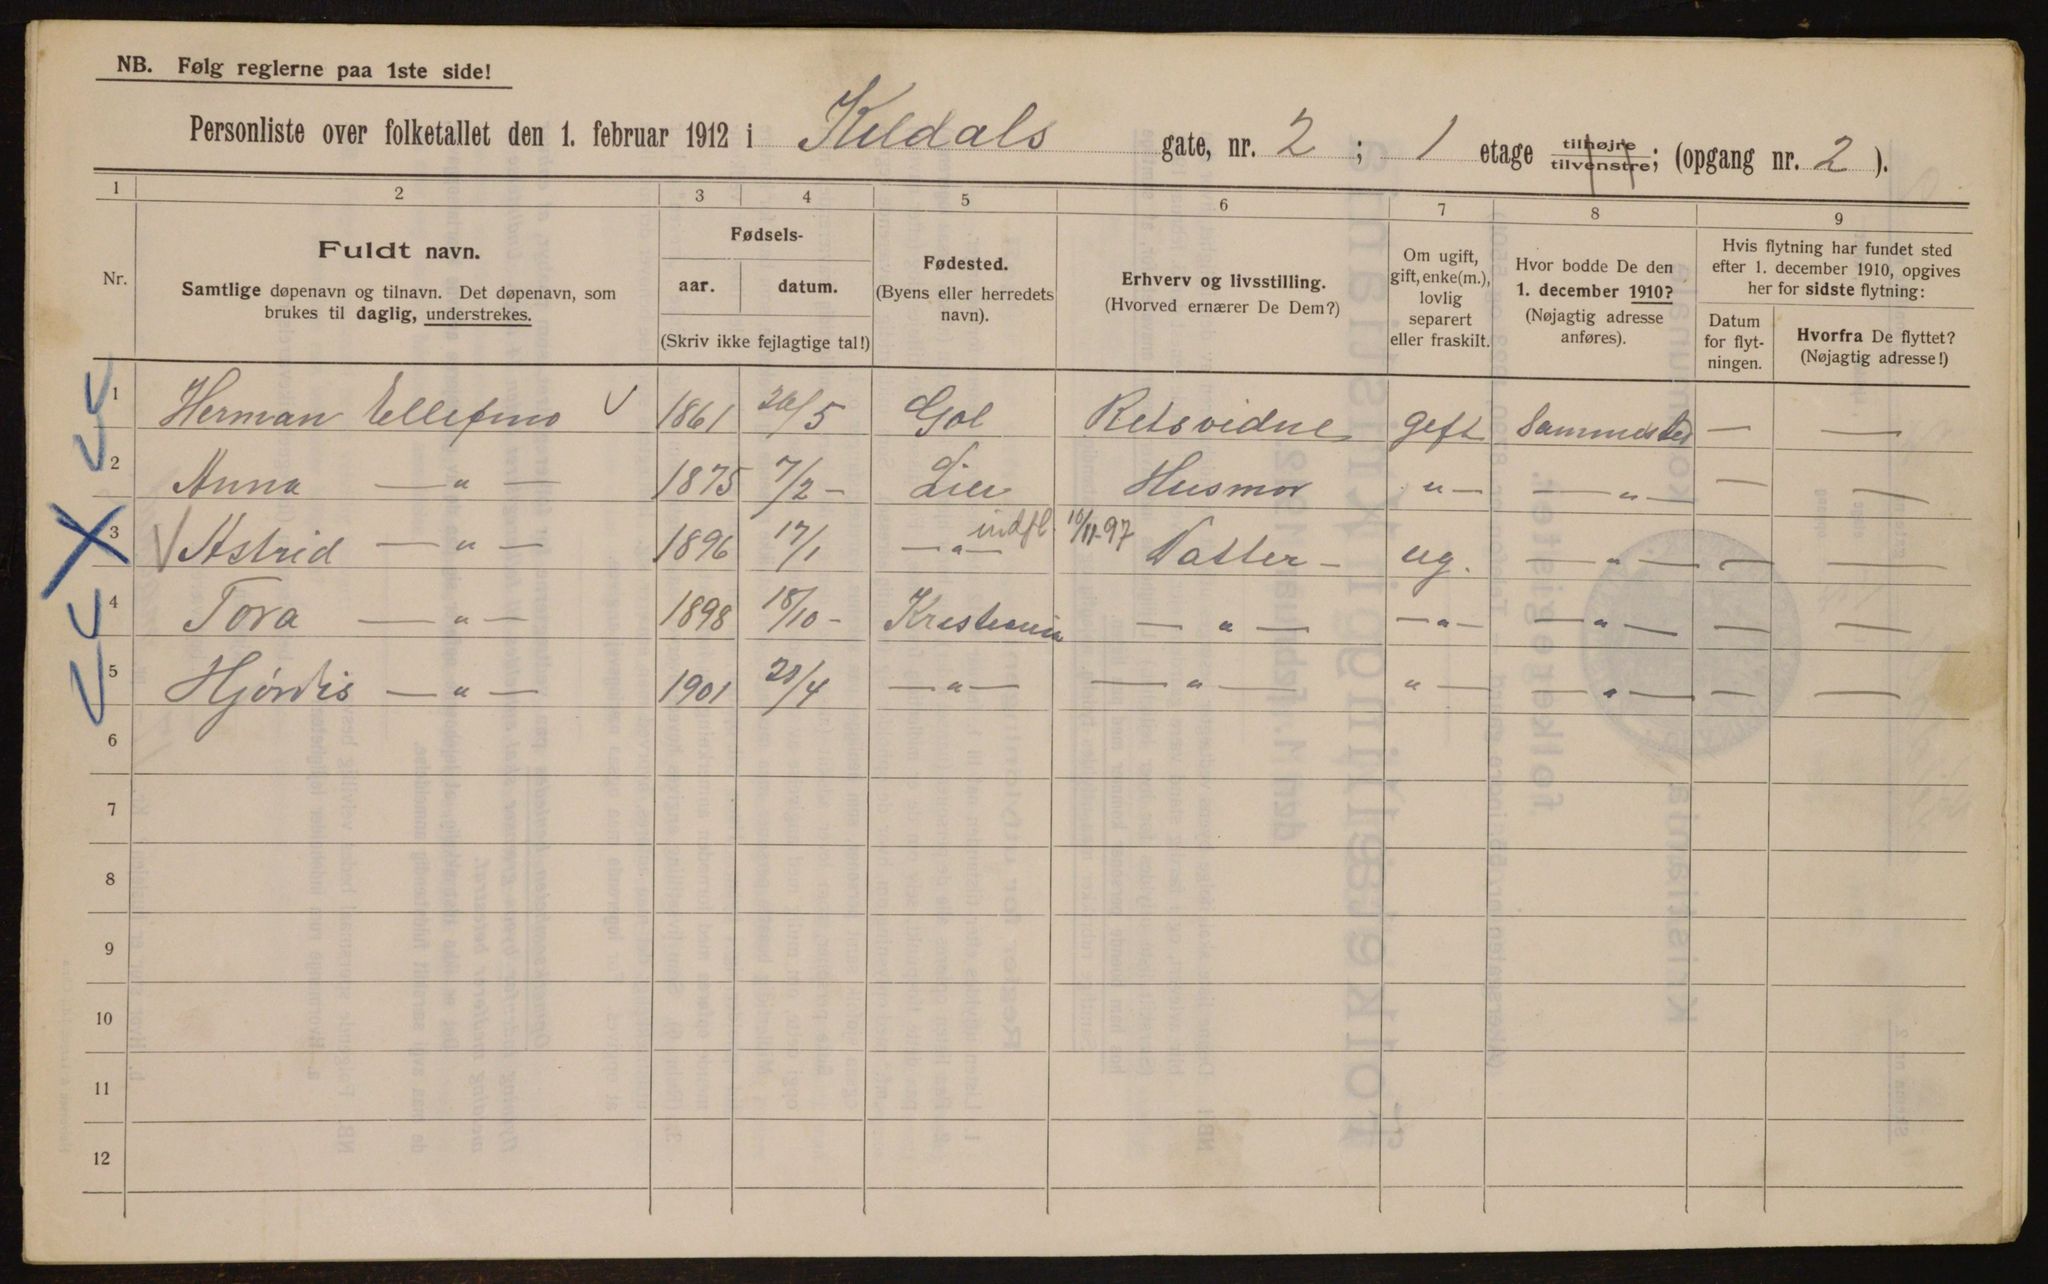 NB. Følg reglerne paa 1ste side!
Personliste over folketallet den 1. februar 1912 i Keldals gate, nr. 2 ; 1 etage tilhøjre tilvenstre; (opgang nr. 2 ).
1 2 3 4 5 6 7 8 9
Nr.
Fuldt navn.
Samtlige døpenavn og tilnavn. Det døpenavn, som
brukes til daglig, understrekes.
Fødsels-
aar. datum.
(Skriv ikke fejlagtige tal!)
Fødested.
(Byens eller herredets
navn).
Erhverv og livsstilling.
(Hvorved ernærer De Dem?)
Om ugift,
gift, enke(m.),
lovlig
separert
eller fraskilt.
Hvor bodde De den
1. december 1910?
(Nøjagtig adresse
anføres).
Hvis flytning har fundet sted
efter 1. december 1910, opgives
her for sidste flytning:
Datum
for flyt-
ningen.
Hvorfra De flyttet?
(Nøjagtig adresse!)
1 Herman Ellefsno 1861 26/5 Gol Retsvidne gift Sammested — —
2 Anna — " — 1875 7/2 - Lier Husmor " — — " — — —
indfl. 10/11-97
3 Astrid — " — 1896 17/1 — " — Datter - ug. — " — — —
4 Tora — " — 1898 18/10 - Kristiania — " — — " — — " — — —
5 Hjørdis — " — 1901 28/4 — " — — " — " — — " — — —
6
7
8
9
10
11
12